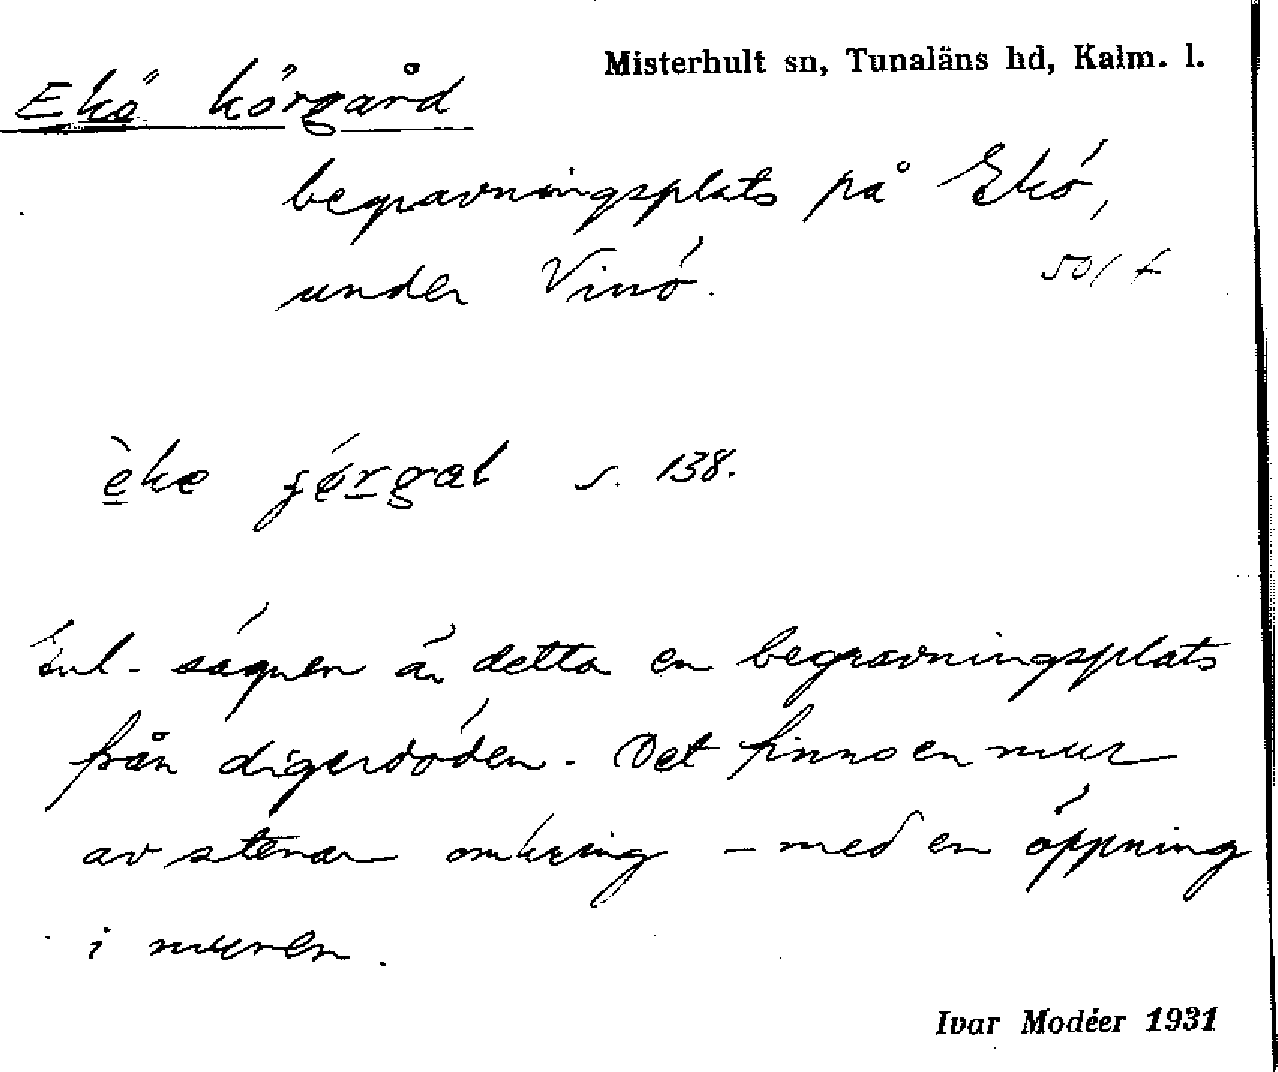 Misterhult sn, Tunaläns hd, Kalm. l.
Ekö körgård
begravningsplats på Ekö,
under Vinö.
501 f
s. 138.
Enl. sägnen är detta en begravningsplats
från digerdöden. Det finns en mur
av stenar omkring – med en öppning
i muren.
Ivar Modéer 1931